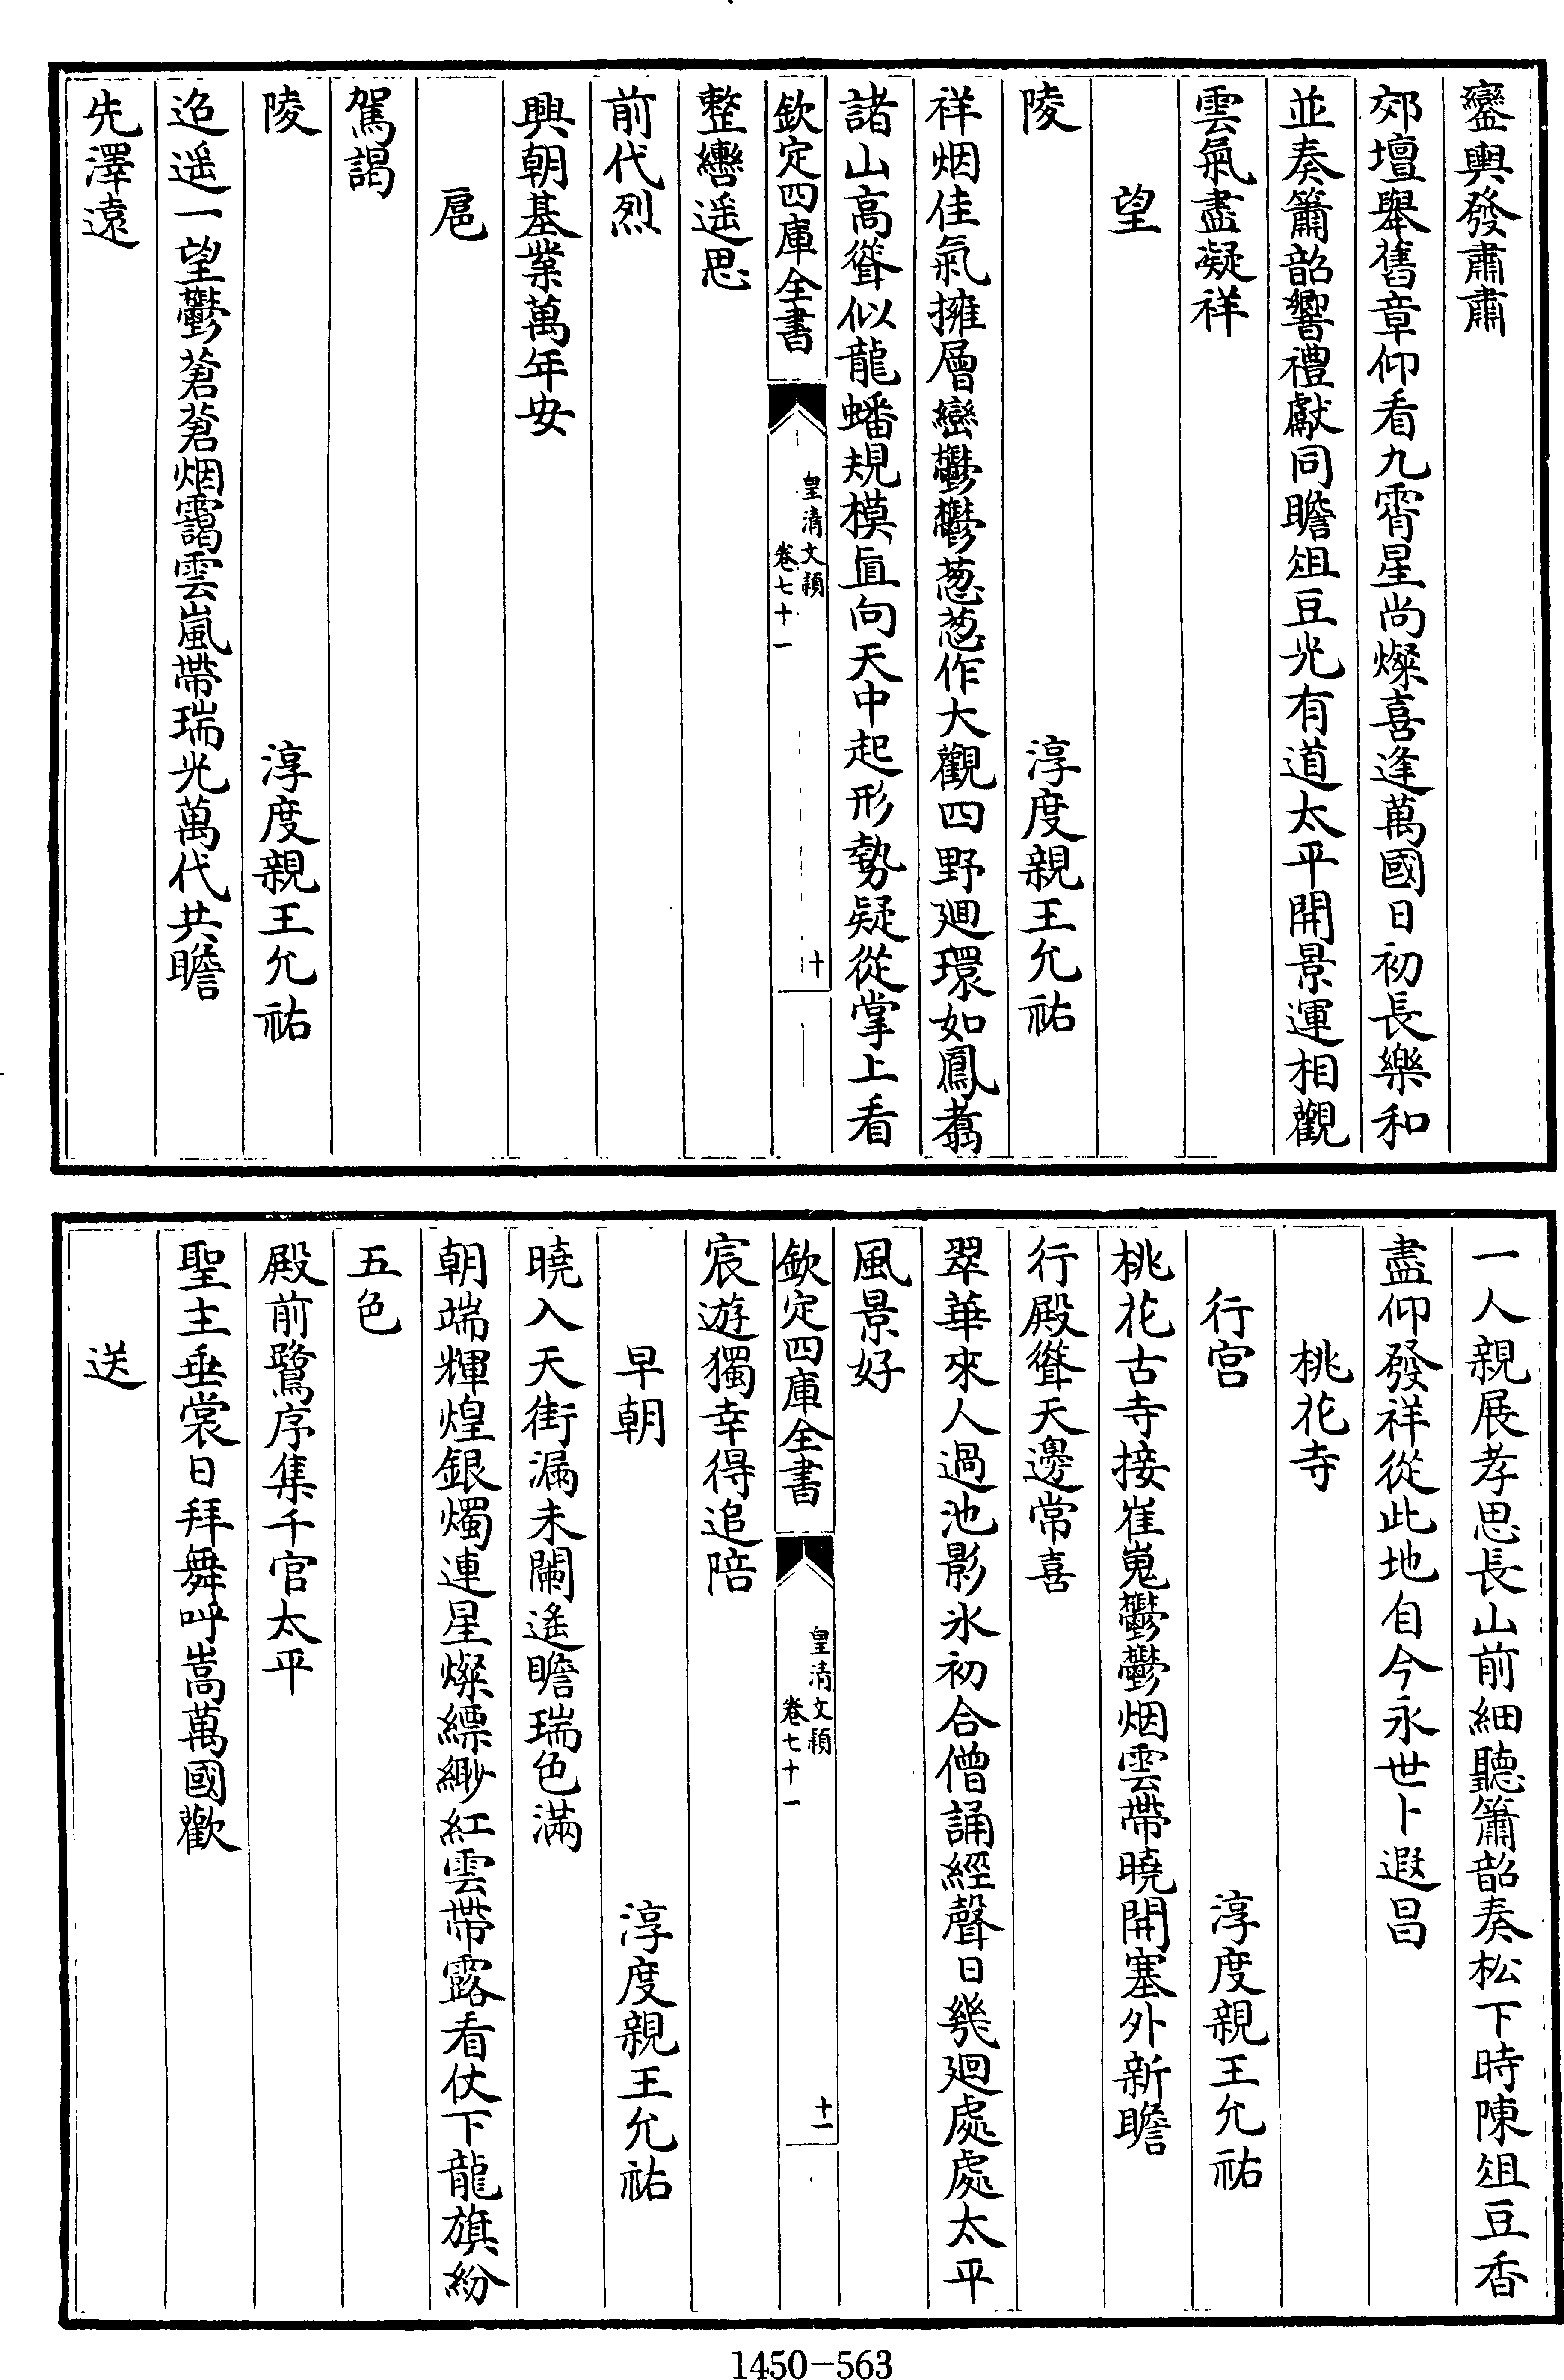 鑾輿發肅肅
郊壇舉舊章仰看九霄星尚燦喜逢萬國日初長樂和
並奏簫韶響禮獻同瞻俎豆光有道太平開景運相觀
雲氣盡凝祥
望
陵　淳度親王允祐
祥烟佳氣擁層巒鬱鬱葱葱作大觀四野廻環如鳳翥
諸山高聳似龍蟠規模直向天中起形勢疑從掌上看
欽定四庫全書　皇清文穎　卷七十一　十
整轡遥思
前代烈
興朝基業萬年安
扈
駕謁
陵　淳度親王允祐
迢遥一望鬱蒼蒼烟靄雲嵐帶瑞光萬代共瞻
先澤遠
一人親展孝思長山前細聽簫韶奏松下時陳俎豆香
盡仰發祥從此地自今永世卜遐昌
桃花寺
行宫　淳度親王允祐
桃花古寺接崔嵬鬱鬱烟雲帶曉開塞外新瞻
行殿聳天邊常喜
翠華來人過池影氷初合僧誦經聲日幾廻處處太平
風景好
欽定四庫全書　皇清文穎　卷七十一　十一
宸遊獨幸得追陪
早朝　淳度親王允祐
曉入天街漏未闌遙瞻瑞色滿
朝端輝煌銀燭連星燦縹緲紅雲帶露看仗下龍旗紛
五色
殿前鷺序集千官太平
聖主垂裳日拜舞呼嵩萬國歡
送
1450-563